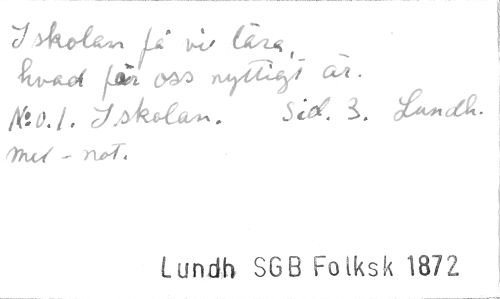 I skolan få vi lära,
hvad för oss nyttigt är.
No. 1. I skolan. Sid. 3. Lundh.
mel - not.
Lundh SGB Folksk 1872